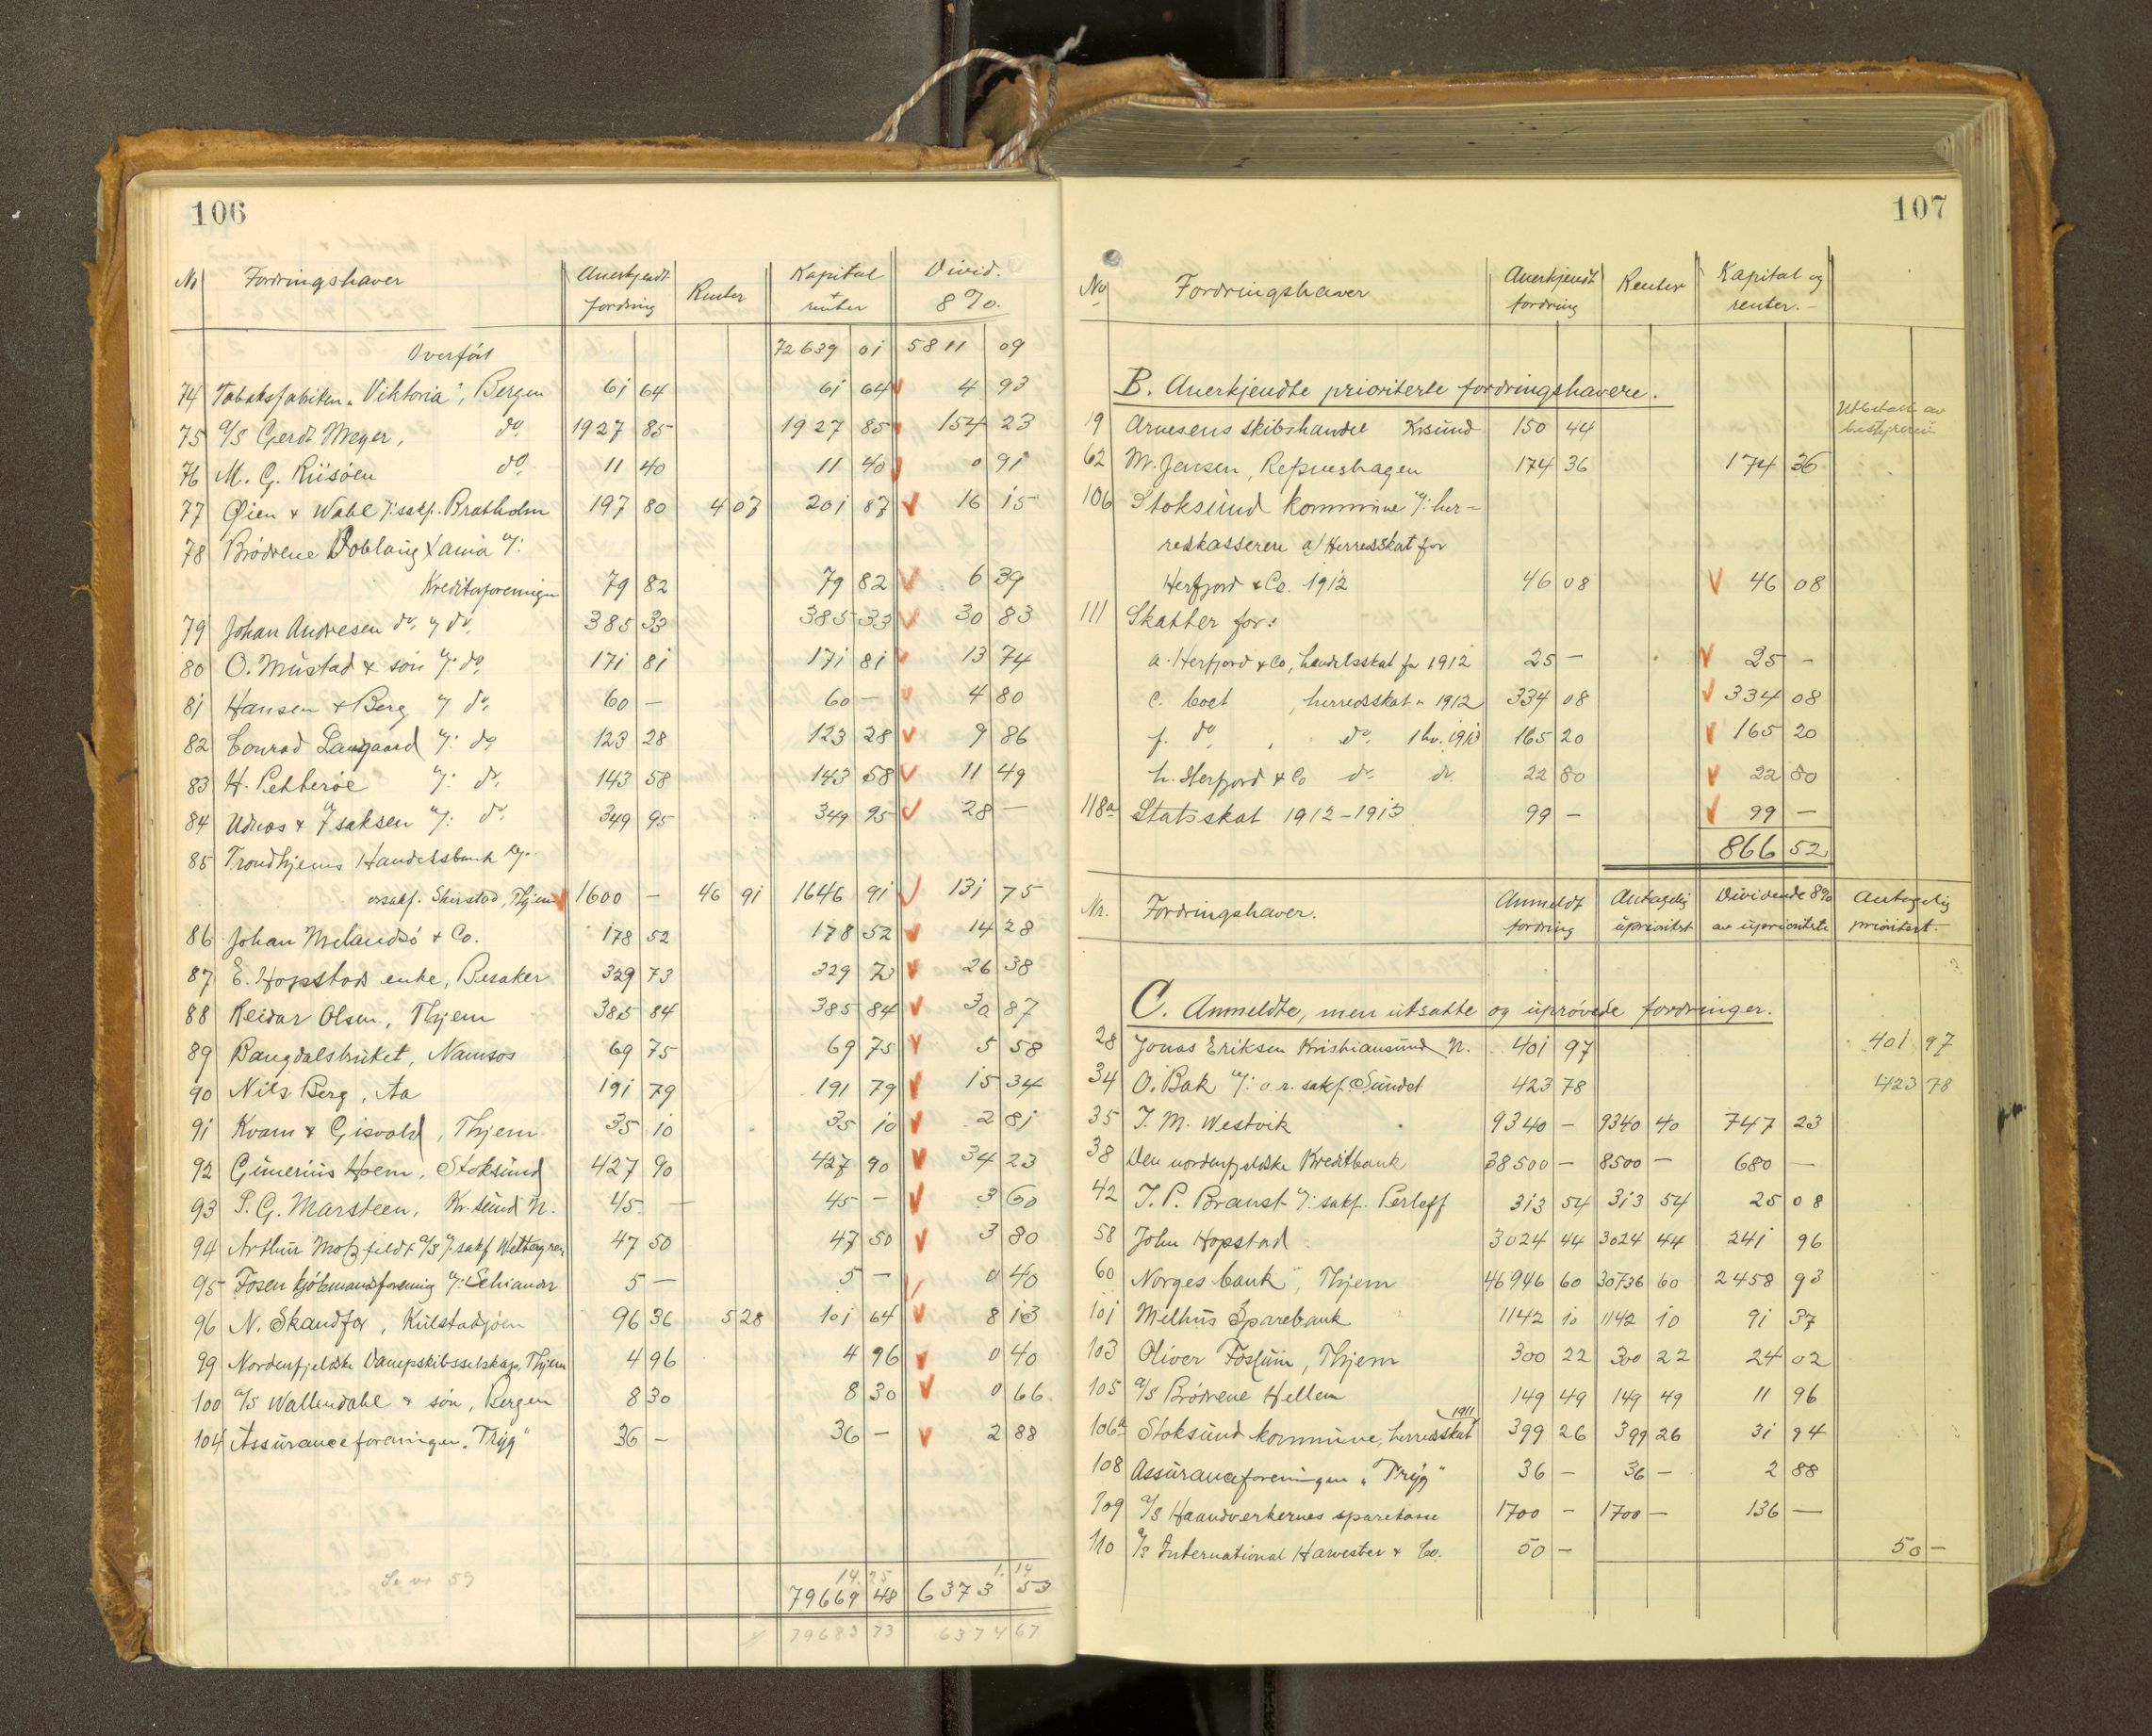 106
No Fordringshaver Anerkjendt fordring Renter Kapital + renter Divid. 8 %.
Overført 72639 01 5811 09
74 Tobaksfabriken „Viktoria", Bergen 61 64 61 64 4 93
75 A/S Gerdt Meyer, do. 1927 85 1927 85 154 23
76 M. G. Riisøen do. 11 40 11 40 0 91
77 Øien & Wahl v/: sakf. Bratholm 197 80 4 07 201 87 16 15
78 Brødrene Doblaug Xania v/:
Kreditorforeningen 79 82 79 82 6 39
79 Johan Andresen do. v/ do. 385 33 385 33 30 83
80 O. Mustad & søn v/: do. 171 81 171 81 13 74
81 Hansen & Berg v/ do. 60 — 60 — 4 80
82 Conrad Langaard v/: do. 123 28 123 28 9 86
83 H. Petterøe v/: do. 143 58 143 58 11 49
84 Udnæs & Isaksen v/: do. 349 95 349 95 28 —
85 Trondhjems Handelsbank v/.
orsakf. Skirstad, Thjem 1600 — 46 91 1646 91 131 75
86 Johan Melandsø & Co. 178 52 178 52 14 28
87 E. Hopstads enke, Besaker 329 73 329 73 26 38
88 Reidar Olsen, Thjem 385 84 385 84 30 87
89 Bangdalsbruket, Namsos 69 75 69 75 5 58
90 Nils Berg, Aa 191 79 191 79 15 34
91 Kvam & Gisvold, Thjem 35 10 35 10 2 81
92 Gunerius Hoem, Stoksund 427 90 427 90 34 23
93 P. G. Marsteen, Kr.sund N. 45 — 45 — 3 60
94 Arthur Motzfeldt A/S v/: sakf Wettergren 47 50 47 50 3 80
95 Fosen kjøbmandsforening v/: Schiander 5 — 5 — 0 40
96 N. Skandfer, Kulstadsjøen 96 36 5 28 101 64 8 13
99 Nordenfjeldske Dampskibsselskap, Thjem 4 96 4 96 0 40
100 A/S Wallendahl & søn, Bergen 8 30 8 30 0 66
104 Assuranceforeningen „Tryg" 36 — 36 — 2 88
14.25 1.14
Se nr 59 79669 48 6373 53
79683 73 6374 67
107
No Fordringshaver Anerkjendt fordring Renter Kapital og renter.—
B. Anerkjendte prioriterte fordringshavere.
Utbetalt av bestyreren
19 Arnesens skibshandel Krsund 150 44
62 M. Jensen, Refsneshagen 174 36 174 36
106 Stoksund kommune v/: her-
redskassereren a/ Herredsskat for
Herfjord & Co. 1912 46 08 46 08
111 Skatter for:
a. Herfjord & Co, handelsskat for 1912 25 — 25 —
c. boet , herredsskat „ 1912 334 08 334 08
f. do. , do. 1 hv. 1913 165 20 165 20
h. Herfjord & Co do. do. 22 80 22 80
118a Statsskat 1912-1913 99 — 99 —
866 52
Nr. Fordringshaver. Anmeldt fordring Antagelig uprioritert Dividende 8% av uprioritete Antagelig prioritert.
C. Anmeldte, men utsatte og uprøvede fordringer.
28 Jonas Eriksen Kristiansund N. 401 97 401 97
34 O. Bak v/: o.r. sakf. Sundet 423 78 423 78
35 T. M. Westvik 9340 — 9340 40 747 23
38 Den nordenfjeldske Kreditbank 38500 — 8500 — 680 —
42 T. P. Branst v/: sakf. Perloff 313 54 313 54 25 08
58 John Hopstad 3024 44 3024 44 241 96
60 Norges bank, Thjem 46946 60 30736 60 2458 93
101 Melhus Sparebank 1142 10 1142 10 91 37
103 Oliver Fossum, Thjem 300 22 300 22 24 02
105 A/S Brødrene Hellem 149 49 149 49 11 96
106a Stoksund kommune, herredsskat 1911 399 26 399 26 31 94
108 Assuranceforeningen „Tryg" 36 — 36 — 2 88
109 A/S Haandverkernes sparekasse 1700 — 1700 — 136 —
110 A/S International Harvester & Co. 50 — 50 —